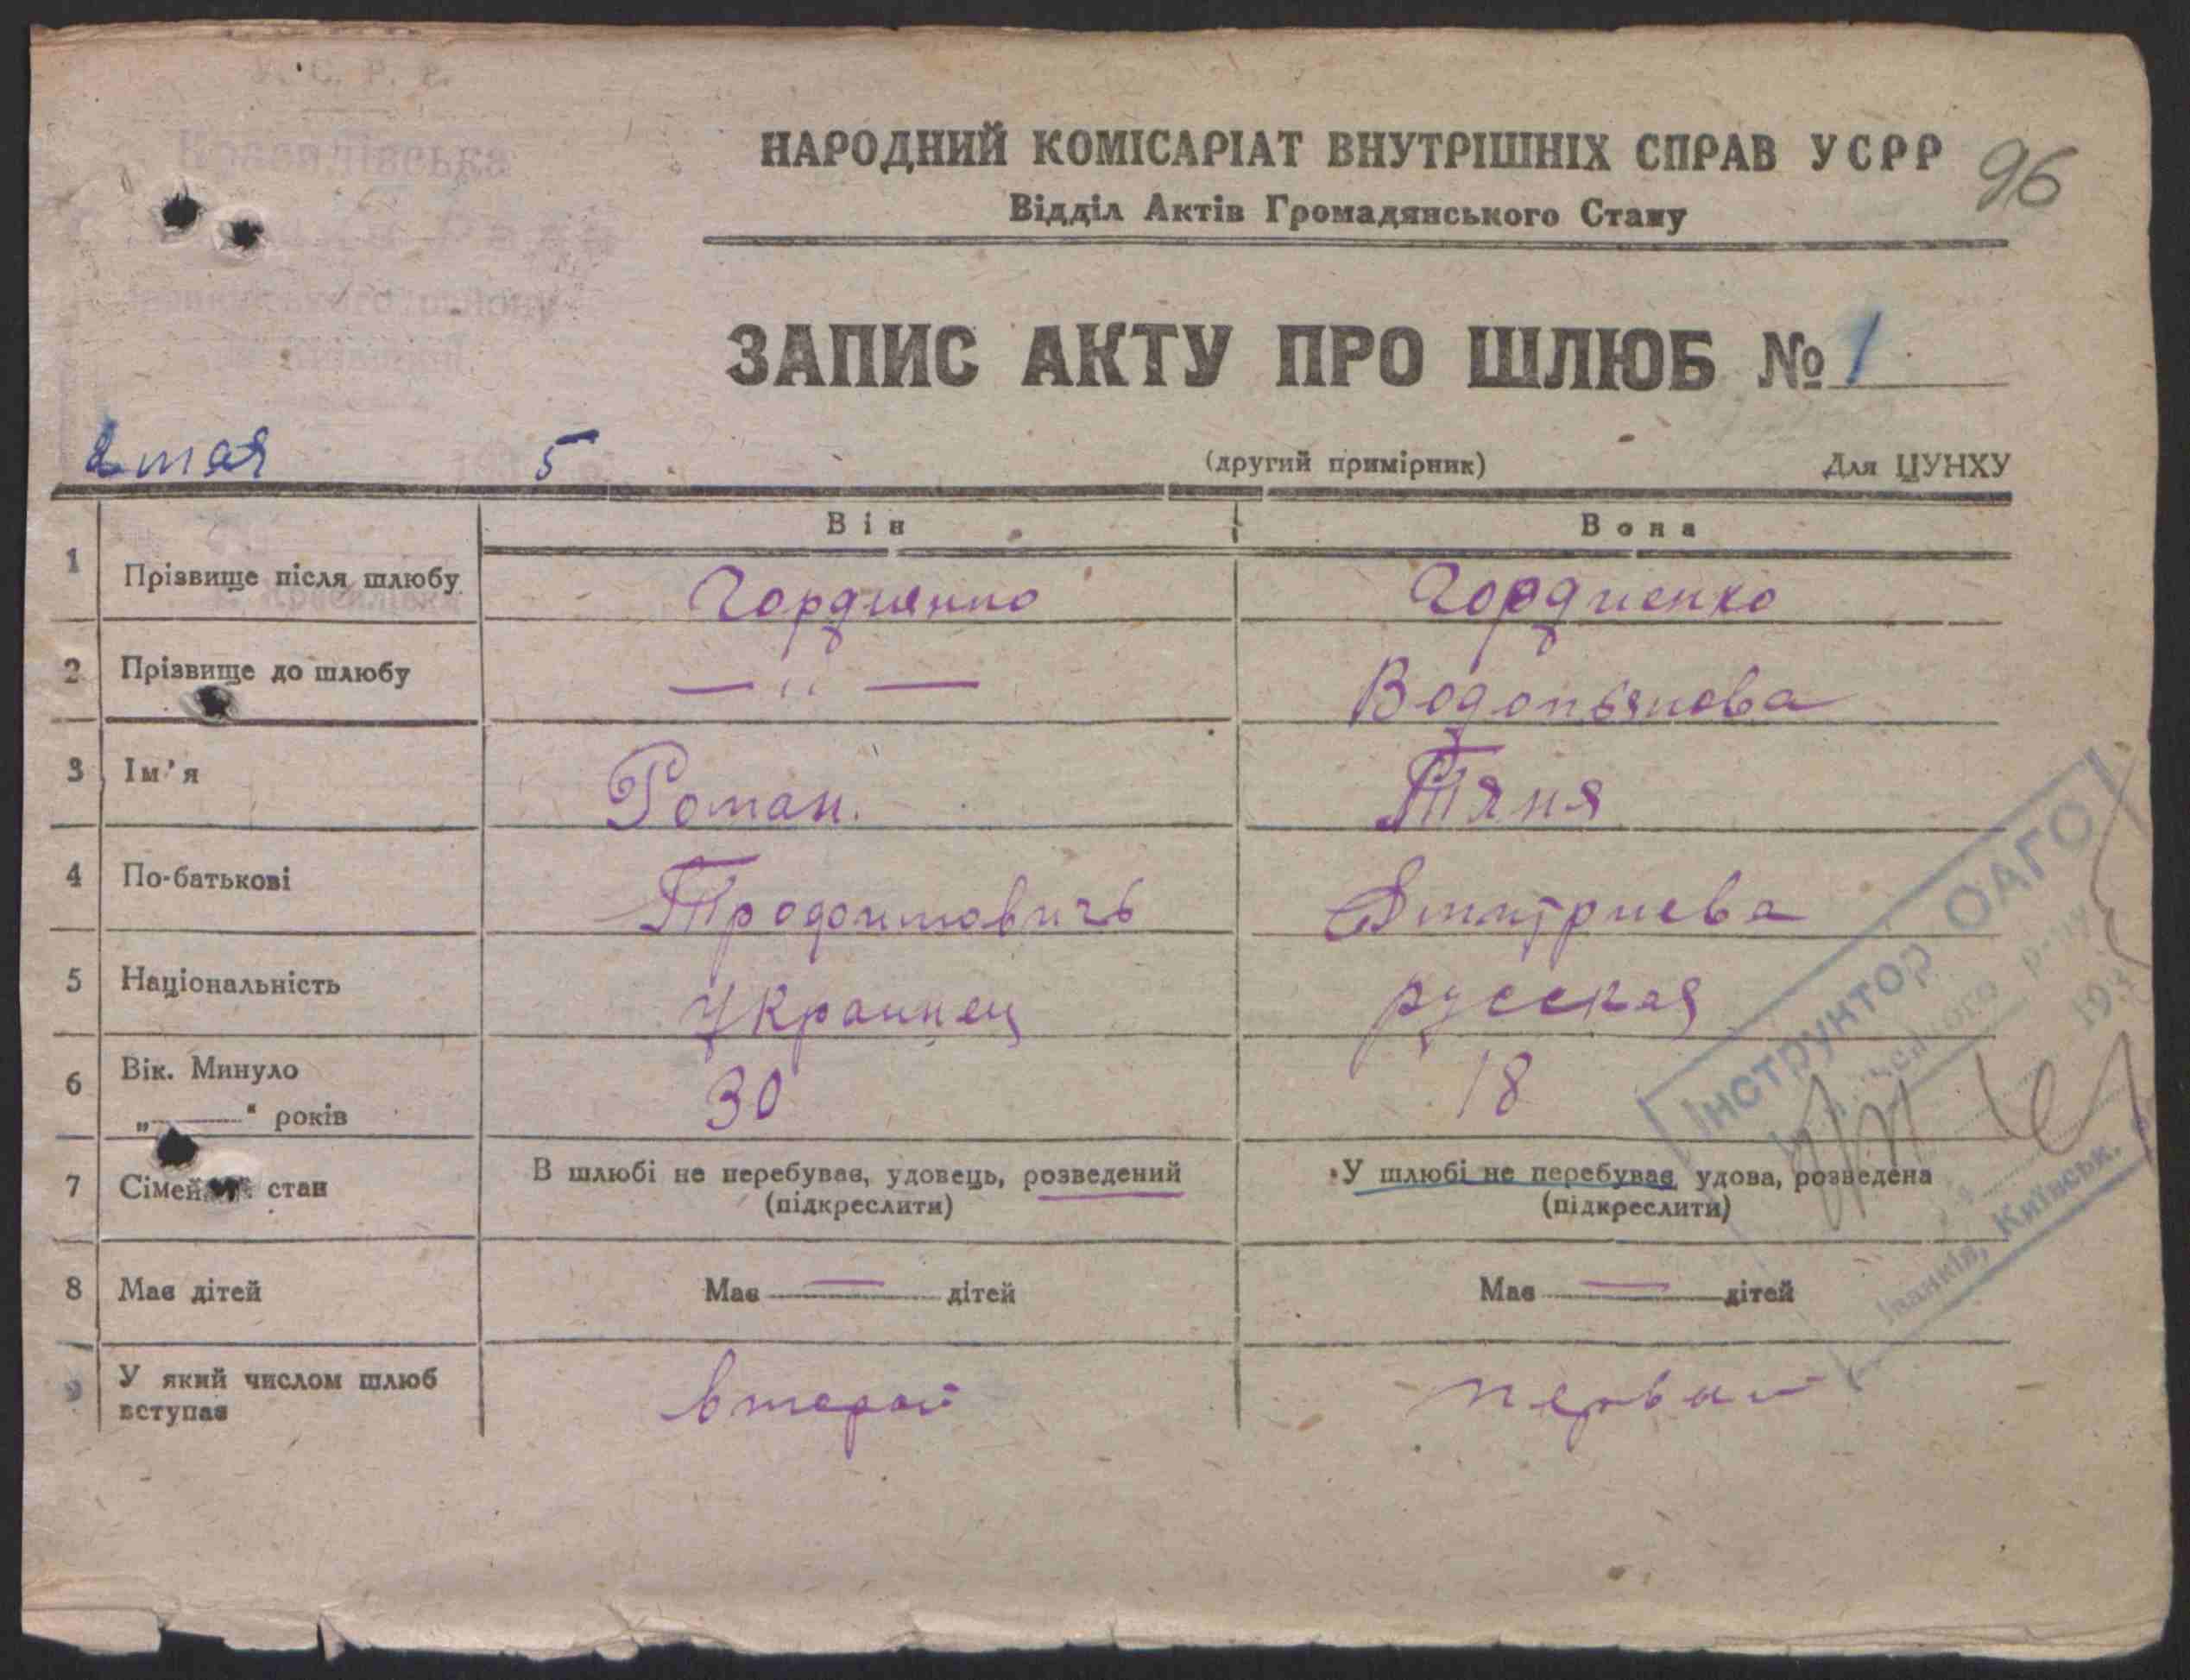 У. С. Р. Р.
НАРОДНИЙ КОМІСАРІАТ ВНУТРІШНІХ СПРАВ УСРР
96
Відділ Актів Громадянського Стану
району
ЗАПИС АКТУ ПРО ШЛЮБ № 1
2 мая 5
(другий примірник) Для ЦУНХУ
Він Вона
1 Прізвище після шлюбу Гордиенко Гордиенко
2 Прізвище до шлюбу — '' — Водопьянова
3 Ім'я Роман. Тяня
4 По-батькові Дмитриева
5 Національність Украинец русская
6 Вік. Минуло 30 18
„ " років
7 Сімейний стан В шлюбі не перебував, удовець, розведений У шлюбі не перебував удова, розведена
(підкреслити) (підкреслити)
8 Має дітей Має — дітей Має — дітей
9 У який числом шлюб второй первый
вступав
Інструктор ОАГС
Іванків, Київськ.